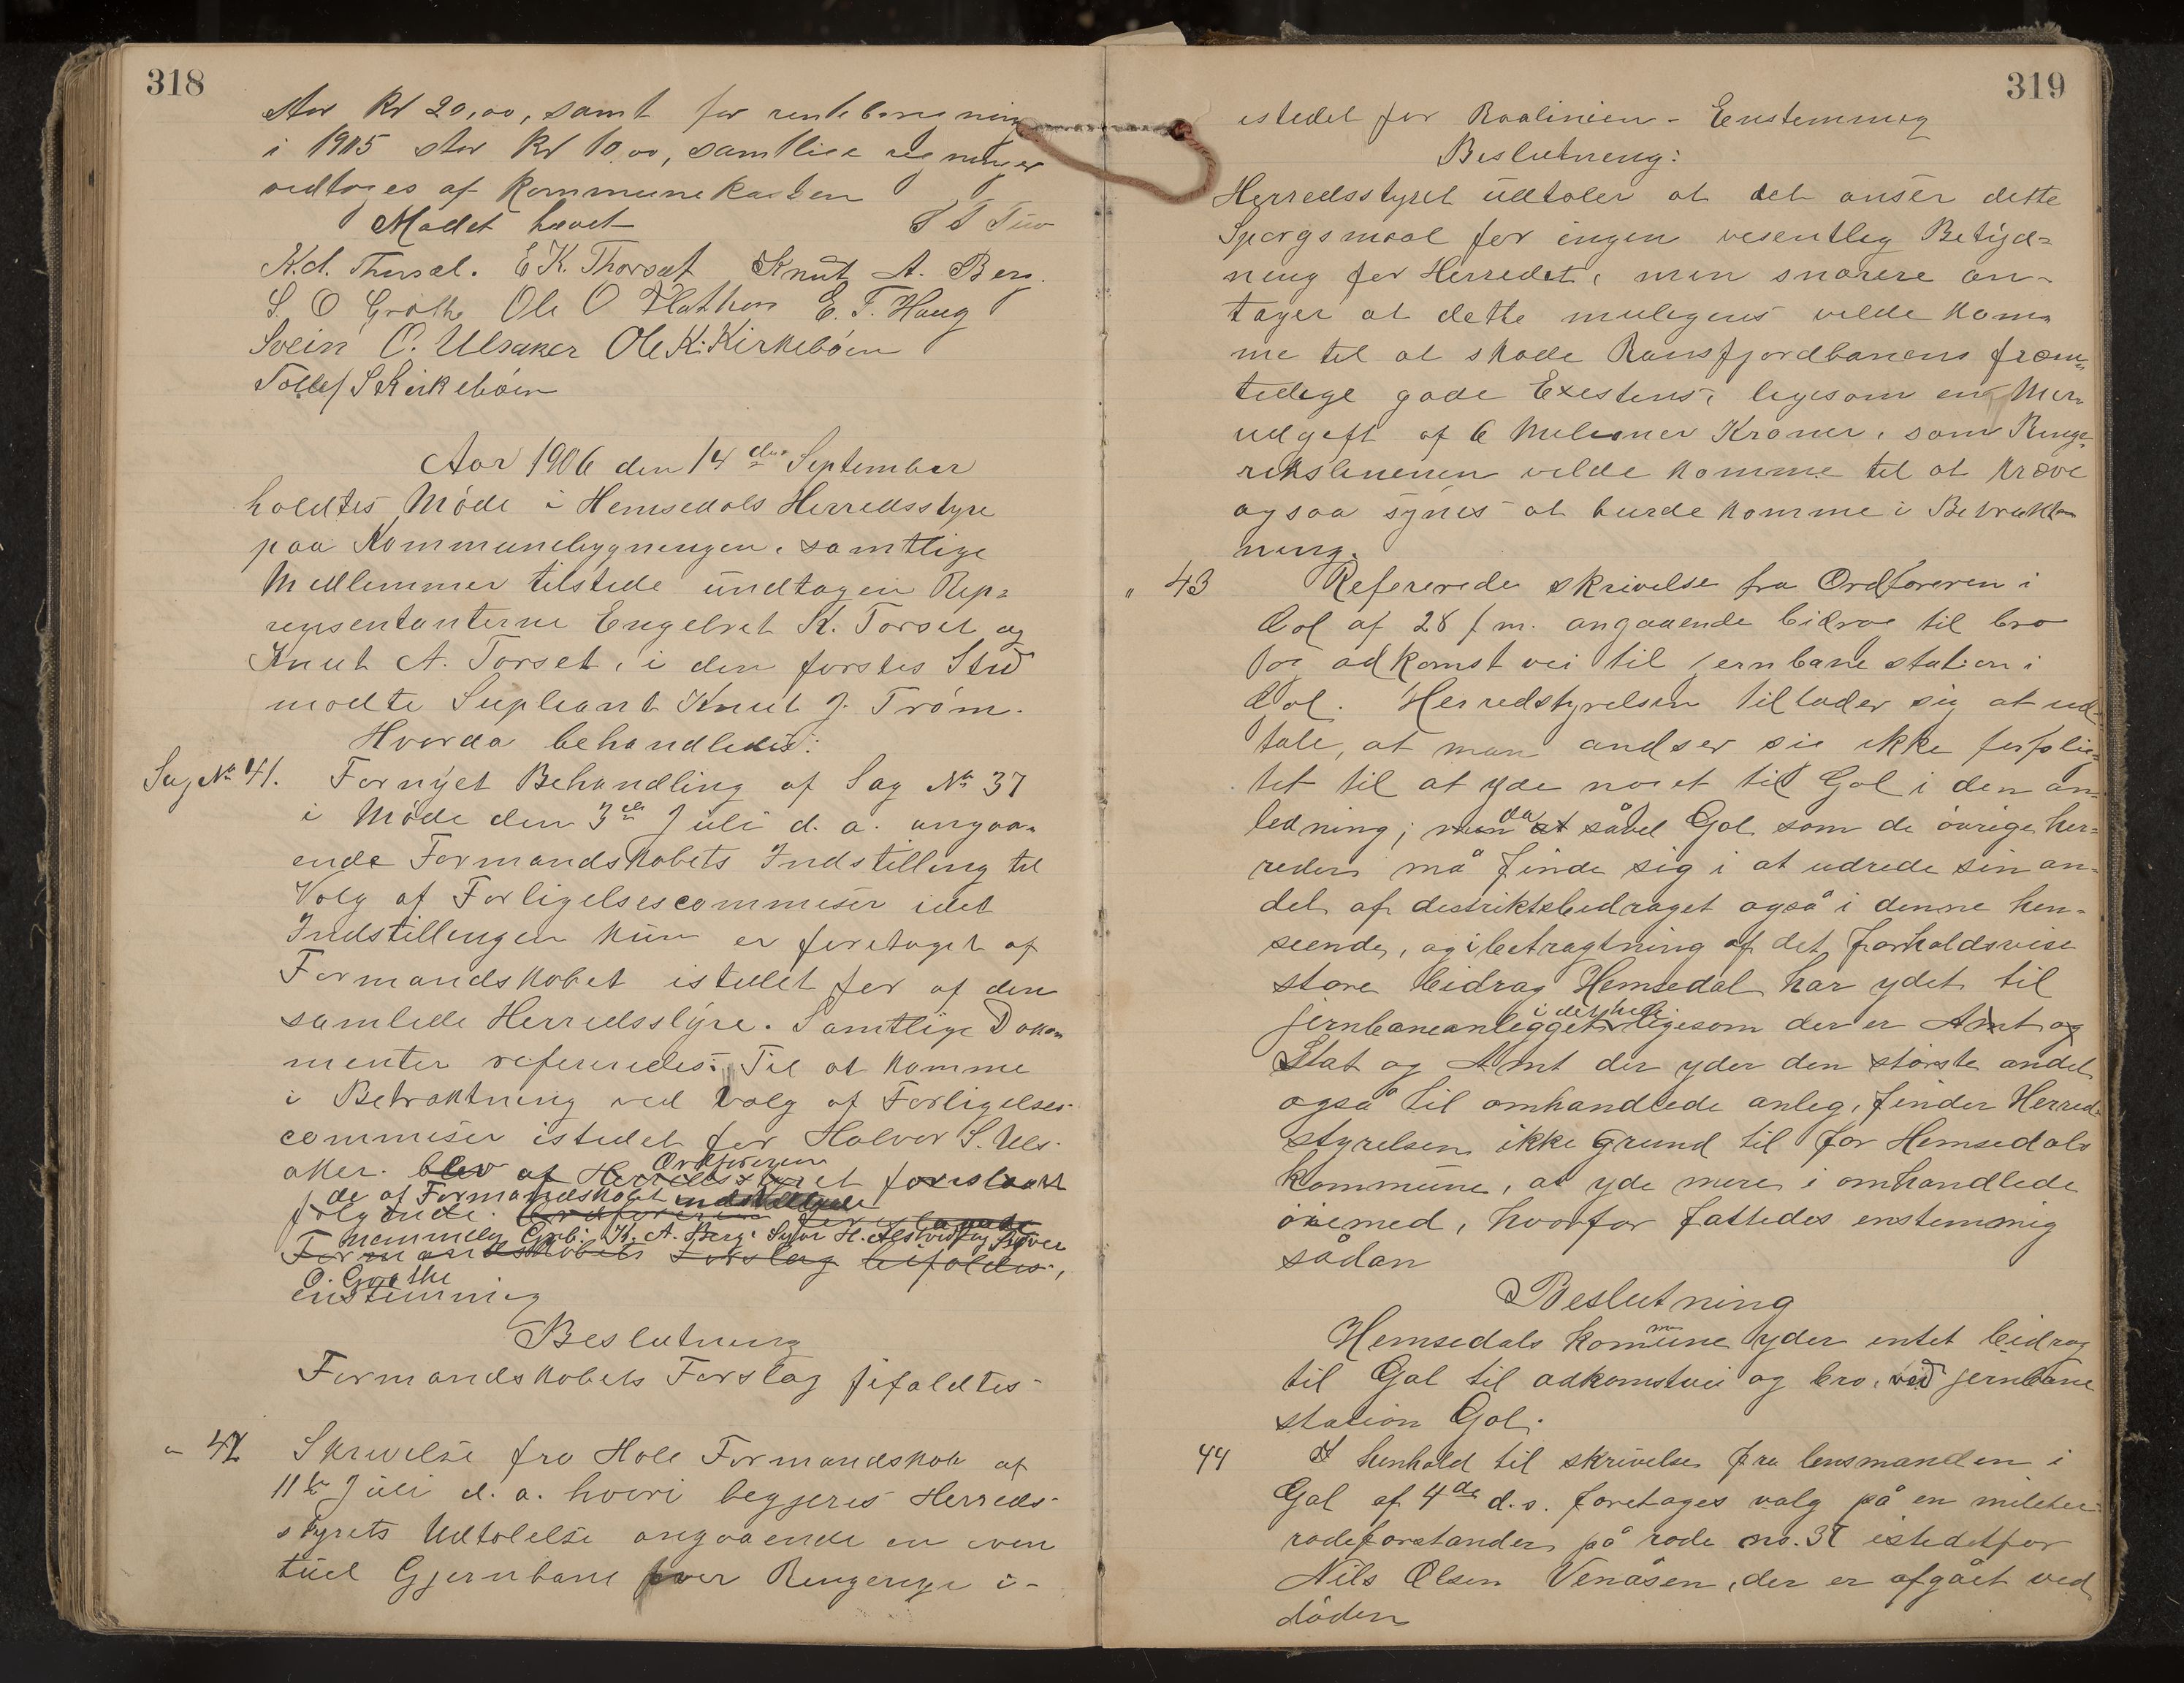 318
stor Kr 20,00, samt for renteberegning
i 1905 stor Kr 10,00, samtlige regninger
vedtoges af Kommunekassen
Mødet hævet
K.A. Thorset. E K. Thorset Knut A. Berg.
S. O Grøthe Ole O Flathen E. T. Haug
Svein O. Ulsaker Ole K. Kirkebøen
Tollef S Kirkebøen
Aar 1906 den 14de September
holdtes Møde i Hemsedals Herredsstyre
paa Kommunebygningen, samtlige
Medlemmer tilstede undtagen Rep=
resentanterne Engebret K. Torset og
Knut A. Torset, i den førstes Sted
mødte Supleant Knut J. Trøm.
Hvorda behandledes:
Sag No 41. Fornyet Behandling af Sag No 37
i Møde den 3de Juli d. a. angaa=
ende Formandskabets Indstilling til
Valg af Forligelsescommisær idet
Indstillingen kun er foretaget af
Formandskabet istedet for af den
samlede Herredsstyre. Samtlige Doku
menter refereredes: Til at komme
i Betraktning ved Valg af Forligelses-
commisær istedet for Halvor S. Uls-
aker. blev af Herredsstyret foreslaaet
Ordføreren
de af Formandskabet indstillede
følgende. Ordføreren
Nemmelig Emb: K. A. Berg, Syver H. Ulsaker og Syver
Formandskabets Forslag bifaldes,
O. Grøthe
enstemmig
Beslutning
Formandskabets Forslag bifaldtes
" 42 Skrivelse fra Hole Formandskab af
11te Juli d. a. hvori begjeres Herreds-
styrets Udtalelse angaaende en even
tuel Gjernbane over Ringerige i-
319
istedet for Roalinien - Enstemmig
Beslutning:
Herredsstyret udtaler at det anser dette
Spørgsmaal for ingen vesentlig Betyd=
ning for Herredet, men snarere an-
tager at dette muligens vilde kom=
me til at skade Ransfjordbanens frem=
tidige gode Existens, ligesom en Mer=
udgift af 6 Milioner Kroner, som Ringe=
rikslinien vilde komme til at kræve
ogsaa synes at burde komme i Betrakt=
ning.
" 43 Refererede skrivelse fra Ordføreren i
Gol af 28 f. m. angaaende bidrag til bro
og adkomstvei til jernbanestation i
Gol. Herredstyrelsen tillader sig at ud=
tale, at man andser sig ikke forplig=
tet til at yde noget til Gol i den an=
ledning; men da at såvel Gol som de øvrige her=
reder må finde sig i at udrede sin an=
del af distriktsbidraget også i denne hen=
seende, og i betragtning af det forholdsvise
store bidrag Hemsedal har ydet til
jernbaneanlegget i det hele ligesom der er Amt og
Stat og Amt der yder den største andel
også til omhandlede anleg, finder Herred=
styrelsen ikke grund til for Hemsedals
kommune, at yde mere i omhandlede
øiemed, hvorfor fattedes enstemmig
sådan
Beslutning
Hemsedals kommune yder intet bidrag
til Gol til adkomstvei og bro, ved jernbane
station Gol.
44 I henhold til skrivelse fra lensmanden i
Gol af 4de d.s. foretages valg på en militær
rodeforstander på rode no. 37 istedetfor
Nils Olsen Venåsen, der er afgået ved
døden